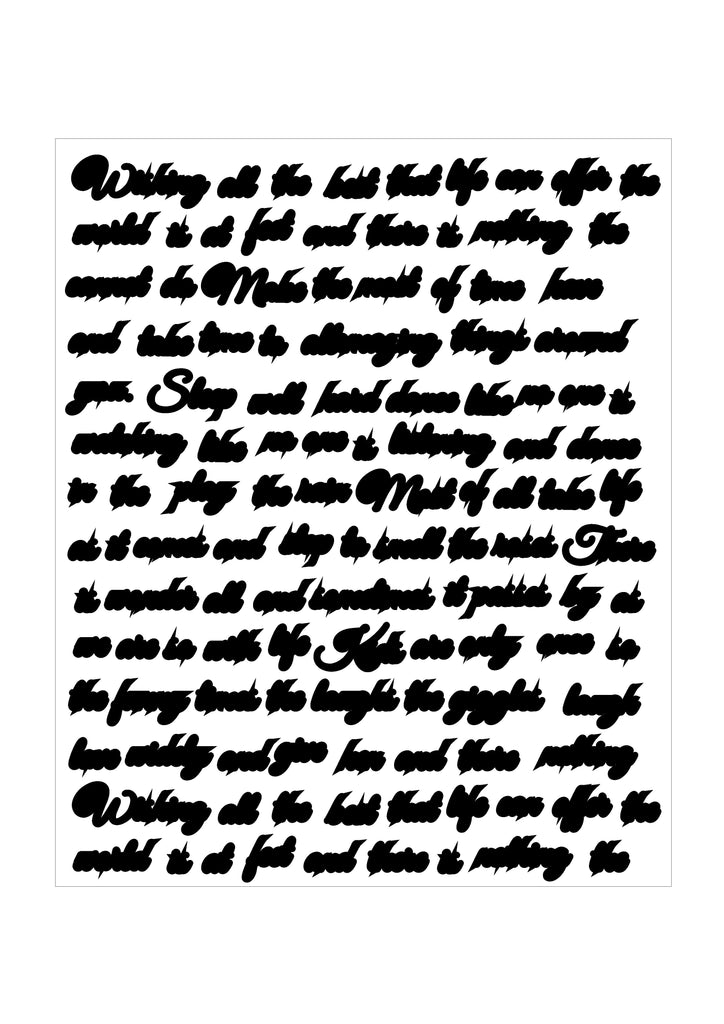 Wishing all the best that life can offer the
world is at feet and there is nothing the
cannot do Make the most of time have
and take time to all things around
you. Sleep well hard dance like no one is
watching like no one is listening and dance
in the play the rain Most of all take life
as it comes and stop to smell the roses There
is wonder all and sometimes it passes by as
we are so with life Kids are only once so
the funny times the laughs the giggles laugh
love widely and give hon and there nothing
Wishing all the best that life can offer the
world is at feet and there is nothing the